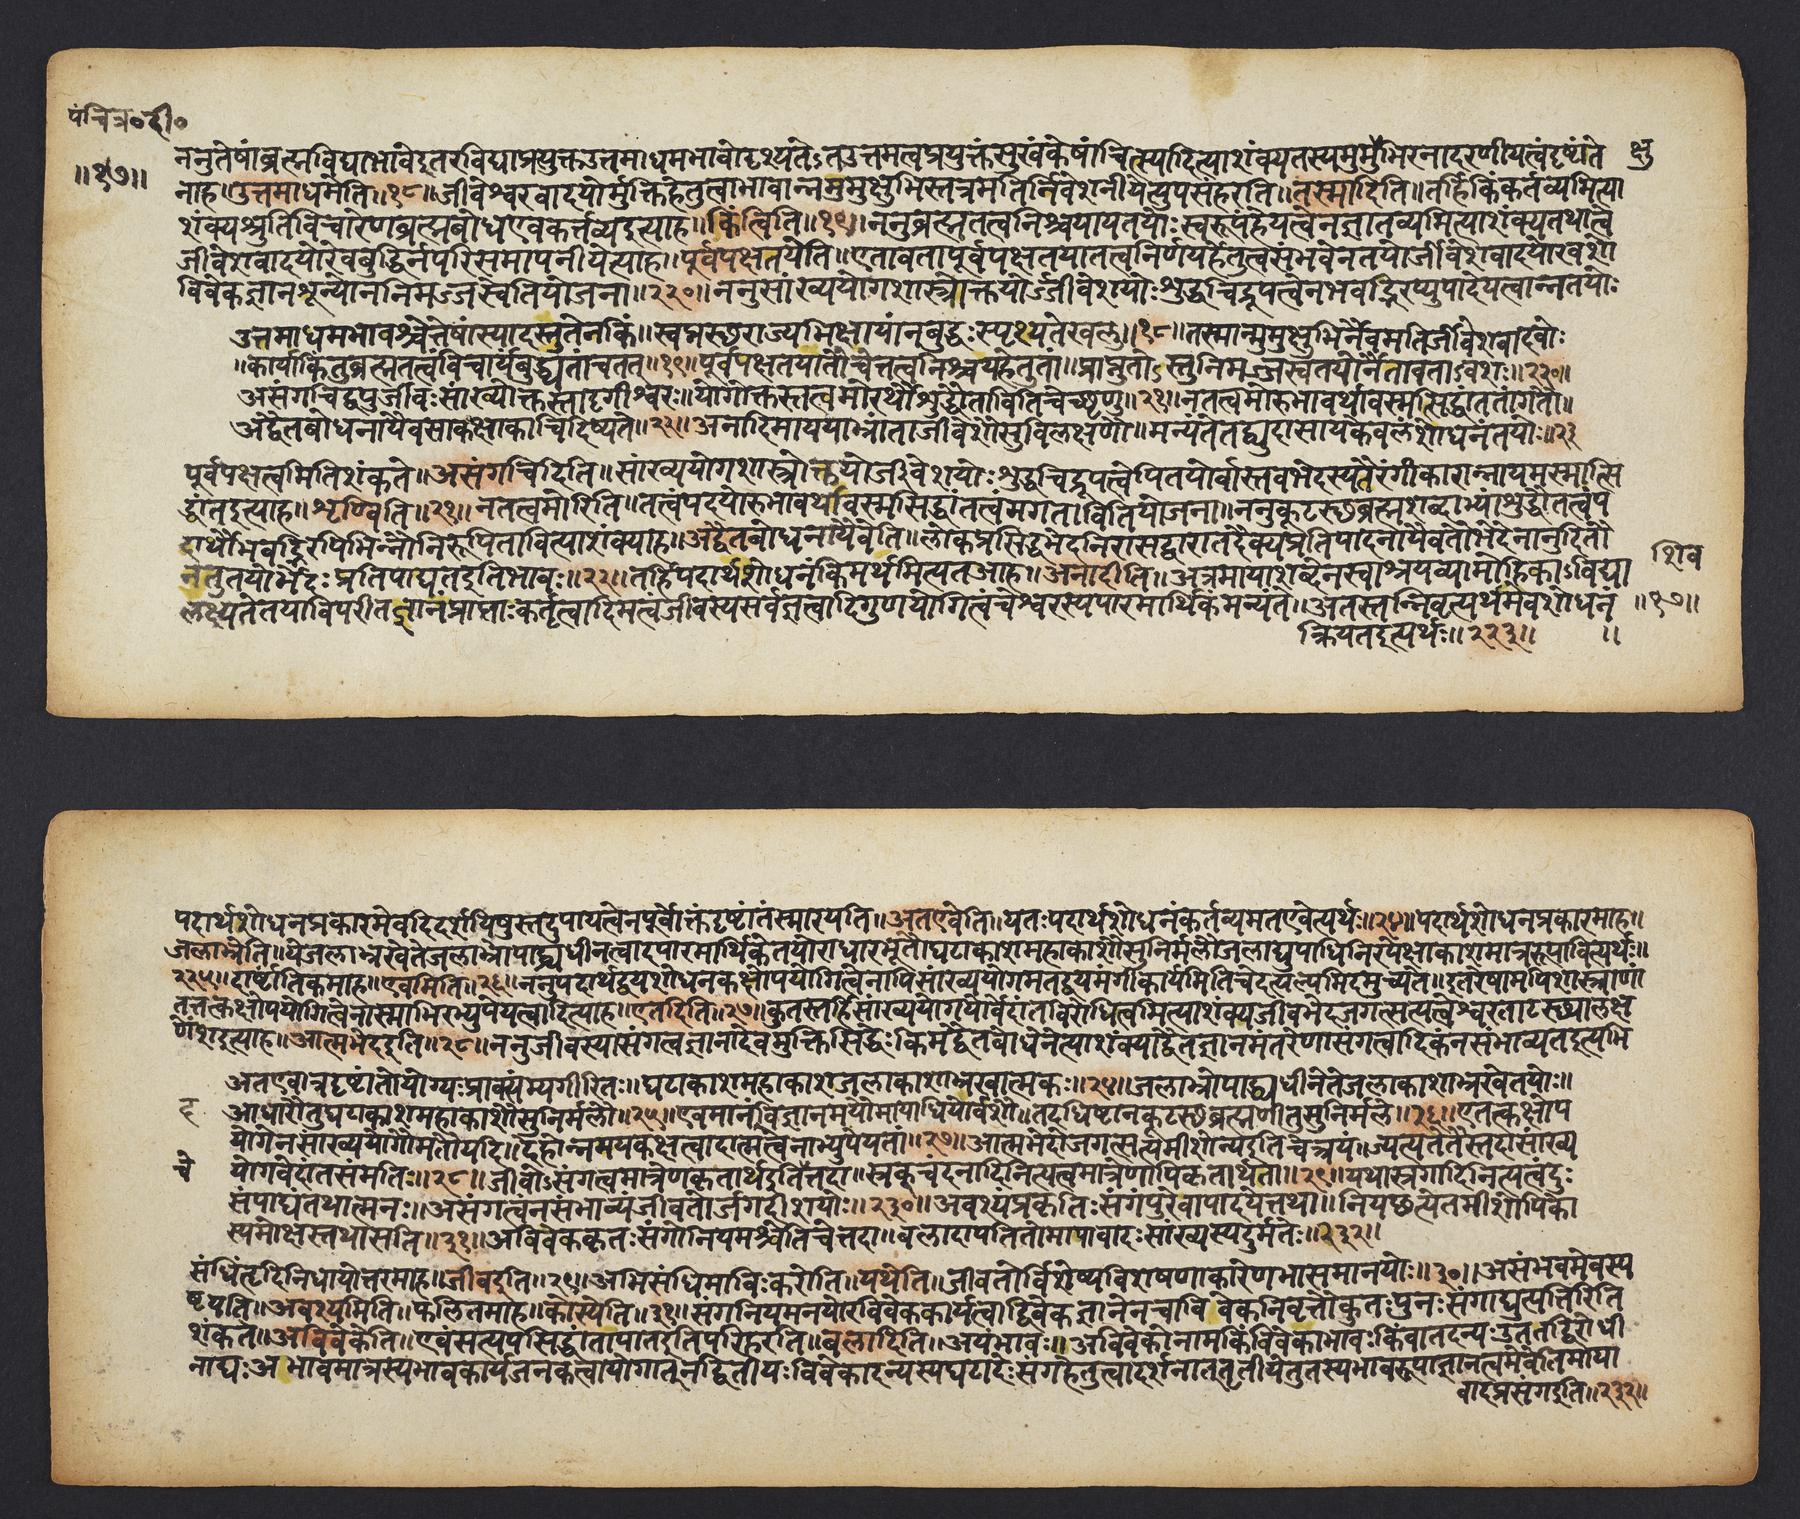 पंचित्र०दी०
ननुतेषांब्रह्मविद्याभावेइतरविद्याप्रयुक्तउत्तमाधमभावोदृश्यते ऽतउत्तमत्वप्रयुक्तंसुखंकेषांचित्स्यादित्याशंक्यतस्यमुमुभिरनादरणीयत्वंदृष्टांते क्षु
॥१७॥
नाह॥उत्तमाधमेति॥१८॥जीवेश्वरवादयोर्मुक्तिहेतुत्वाभावान्नमुमुक्षुभिस्तत्रमतिर्निवेशनीयेत्युपसंहरति॥तस्मादिति॥तर्हिकिंकर्तव्यमित्या
शंक्यश्रुतिविचारेणब्रह्मबोधएवकर्त्तव्यइत्याह॥किंत्विति॥१९॥ननुब्रह्मतत्वनिश्चयायतयोःस्वरूपंहेयत्वेनज्ञातव्यमित्याशंक्यतथात्वे
जीवेशवादयोरेवबुद्धिर्नपरिसमापनीयेत्याह॥पूर्वपक्षतयेति॥एतावतापूर्वपक्षतयातत्वनिर्णयहेतुत्वसंभवेनतयोर्जीवेशवादयोरवशो
विवेकज्ञानशून्योननिमज्जस्वेतियोजना॥२२०॥ननुसांख्ययोगशास्त्रोक्तयोर्जीवेशयोःशुद्धचिद्रूपत्वेनभवद्भिरप्युपादेयत्वान्नतयोः
उत्तमाधमभावश्चेत्तेषांस्यादस्तुतेनकिं॥स्वप्नस्थराज्यभिक्षाभ्यांनबुद्धःस्पृश्यतेखलु॥१८॥तस्मान्मुमुक्षुभिर्नैवमतिर्जीवेशवादयोः
॥कार्याकिंतुब्रह्मतत्वंविचार्यंबुद्ध्यतांचतत्॥१९॥पूर्वपक्षतयातौचेत्तत्वनिश्चयहेतुता॥प्राप्नुतोऽस्तुनिमज्जस्वतयोर्नैतावताऽवशः॥२२०॥
असंगचिद्वपुर्जीवःसांख्योक्तस्तादृगीश्वरः॥योगोक्तस्तत्वमोरर्थौशुद्धौतावितिचेच्छृणु॥२१॥नतत्वमोरुभावर्थावस्मत्सिद्धांततांगतौ॥
अद्वैतबोधनायैवसाकक्षाकाचिदिष्यते॥२२॥अनादिमाययाभ्रांताजीवेशौसुविलक्षणौ॥मन्यंतेतद्व्युदासायकेवलंशोधनंतयोः॥२३
पूर्वपक्षत्वमितिशंकते॥असंगचिदिति॥सांख्ययोगशास्त्रोक्तयोर्जीवेशयोःशुद्धचिद्रूपत्वेपितयोर्वास्तवभेदस्यतैरंगीकारान्नायमस्मत्सि
द्धांतइत्याह॥शृण्विति॥२१॥नतत्वमोरिति॥तत्वंपदयोरुभावर्थावस्मत्सिद्धांतत्वंमगताविति​योजना॥ननुकूटस्थब्रह्मशब्दाभ्यांशुद्धौतत्वंप
दार्थौभवद्भिरपिभिन्नौनिरूपितावित्याशंक्याह॥अद्वैतबोधनायैवेति॥लोकप्रसिद्धभेदनिरासद्वारातदैक्यप्रतिपादनायैवतौभेदेनानुदितौ
शिव
नतुतयोर्भेदःप्रतिपाद्यतइतिभावः॥२२॥तर्हिपदार्थशोधनंकिमर्थमित्यतआह॥अनादीति॥अत्रमायाशब्देनस्वाश्रयव्यामोहिकाऽविद्या
लक्ष्यतेतयाविपरीतज्ञानप्राप्ताःकर्तृत्वादिमत्वंजीवस्यसर्वज्ञत्वादिगुणयोगित्वंचेश्वरस्यपारमार्थिकंमन्यंते॥अतस्तन्निवृत्यर्थमेवशोधनं ॥१७॥
क्रियतइत्यर्थः॥२२३॥ ॥
पदार्थशोधनप्रकारमेवदिदर्शयिषुस्तदुपायत्वेनपूर्वोक्तंदृष्टांतंस्मारयति॥अतएवेति॥यतःपदार्थशोधनंकर्तव्यमतएवेत्यर्थः॥२४॥पदार्थशोधनप्रकारमाह॥
जलाभ्रेति॥येजलाभ्रखेतेजलाभ्रोपाध्यधीनत्वादपारमार्थिकेतयोराधारभूतौघटाकाशमहाकाशौसुनिर्मलौजलाद्युपाधिनिरपेक्षाकाशमात्ररूपावित्यर्थः॥
२२५॥दार्ष्टांतिकमाह॥एवमिति॥२६॥ननुपदार्थद्वयशोधनकक्षोपयोगित्वेनापिसांख्ययोगमतद्वयमंगीकार्यमितिचेदत्यल्पमिदमुच्यते॥इतरेषामपिशास्त्राणां
तत्तत्कक्षोपयोगित्वेनास्माभिरभ्युपेयत्वादित्याह॥एतदिति॥२७॥कुतस्तर्हिसांख्ययोगयोर्वेदांतविरोधित्वमित्याशंक्यजीवभेदजगत्सत्यत्वेश्वरताटस्थ्यालक्षे
णेशइत्याह॥आत्मभेदइति॥२८॥ननुजीवस्यासंगत्वज्ञानादेवमुक्तिसिद्धेःकिमद्वैतबोधेनेत्याशंक्याद्वैतज्ञानमंतरेणासंगत्वादिकंनसंभाव्यतइत्यभि
अतएवात्रदृष्टांतोयोग्यःप्राक्सम्यगीरितः॥घटाकाशमहाकाशजलाकाशाभ्रखात्मकः॥२४॥जलाभ्रोपाध्यधीनेतेजलाकाशाभ्रखेतयोः॥
आधारौतुघटाकाशमहाकाशौसुनिर्मलौ॥२५॥एवमानंदविज्ञानमयौमायाधियोर्वशौ॥तदधिष्टानकूटस्थब्रह्मणीतुसुनिर्मले॥२६॥एतत्कक्षोप
योगेनसांख्ययोगौमतौयदि॥देहोन्नमयकक्षत्वादात्मत्वेनाभ्युपेयतां॥२७॥आत्मभेदोजगत्सत्यमीशोन्यइतिचेत्रयं॥ज्यत्यतेतैस्तदासांख्य
चे योगवेदांतसंमतिः॥२८॥जीवोऽसंगत्वमात्रेणकृतार्थइतिचेत्तदा॥स्रक्चंदनादिनित्यत्वमात्रेणापिकृतार्थता॥२९॥यथास्रगादिनित्यत्वंदुः
संपाद्यंतथात्मनः॥असंगत्वंनसंभाव्यंजीवतोर्जगदीशयोः॥२३०॥अवश्यंप्रकृतिःसंगंपुरेवापादयेत्तथा॥नियच्छत्येतमीशोपिको
स्यमोक्षस्तथासति॥३१॥अविवेककृतःसंगोनियमश्चेतिचेत्तदा॥बलादापतितोमायावादःसांख्यस्यदुर्मतेः॥२३२॥
संधिंहृदिनिधायोत्तरमाह॥जीवइति॥२९॥अभिसंधिमाविःकरोति॥यथेति॥जीवतोर्विशेष्यविशेषणाकारेणभासमानयोः॥३०॥असंभवमेवस्प
ष्टयति॥अवश्यमिति॥फलितमाह॥कोस्येति॥३१॥संगनियमनयोरविवेककार्यत्वाद्विवेकज्ञानेनचाविवेकनिवृत्तौकुतःपुनःसंगाद्युत्पत्तिरिति
शंकते॥अविवेकेति॥एवंसत्यपसिद्धांतापातइतिपरिहरति॥बलादिति॥अयंभावः॥अविवेकोनामकिंविवेकाभावःकिंवातदन्यःउततद्विरोधी
नाद्यःअभावमात्रस्यभावकार्यजनकत्वायोगात्नद्वितीयःविवेकादन्यस्यघटादेःसंगहेतुत्वादर्शनात्तृतीयेतुतस्यभावरूपाज्ञानत्वमेवेतिमाया
वादप्रसंगइति॥२३२॥